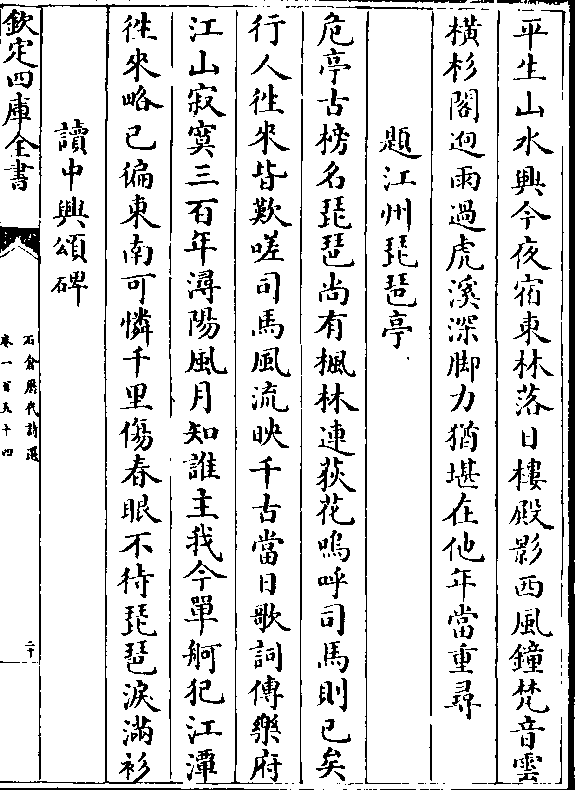 平生山水興今夜宿東林落日樓殿影西風鐘梵音雲
橫杉閣迥雨過虎溪深脚力猶堪在他年當重尋
題江州琵琶亭
危亭古榜名琵琶尚有楓林連荻花嗚呼司馬則已矣
行人徃來皆歎嗟司馬風流映千古當日歌詞傳樂府
江山寂寞三百年潯陽風月知誰主我今單舸犯江潭
徃來略已徧東南可憐千里傷春眼不待琵琶淚滿衫
讀中興頌碑
欽定四庫全書
石倉歷代詩選
卷一百五十四
二十